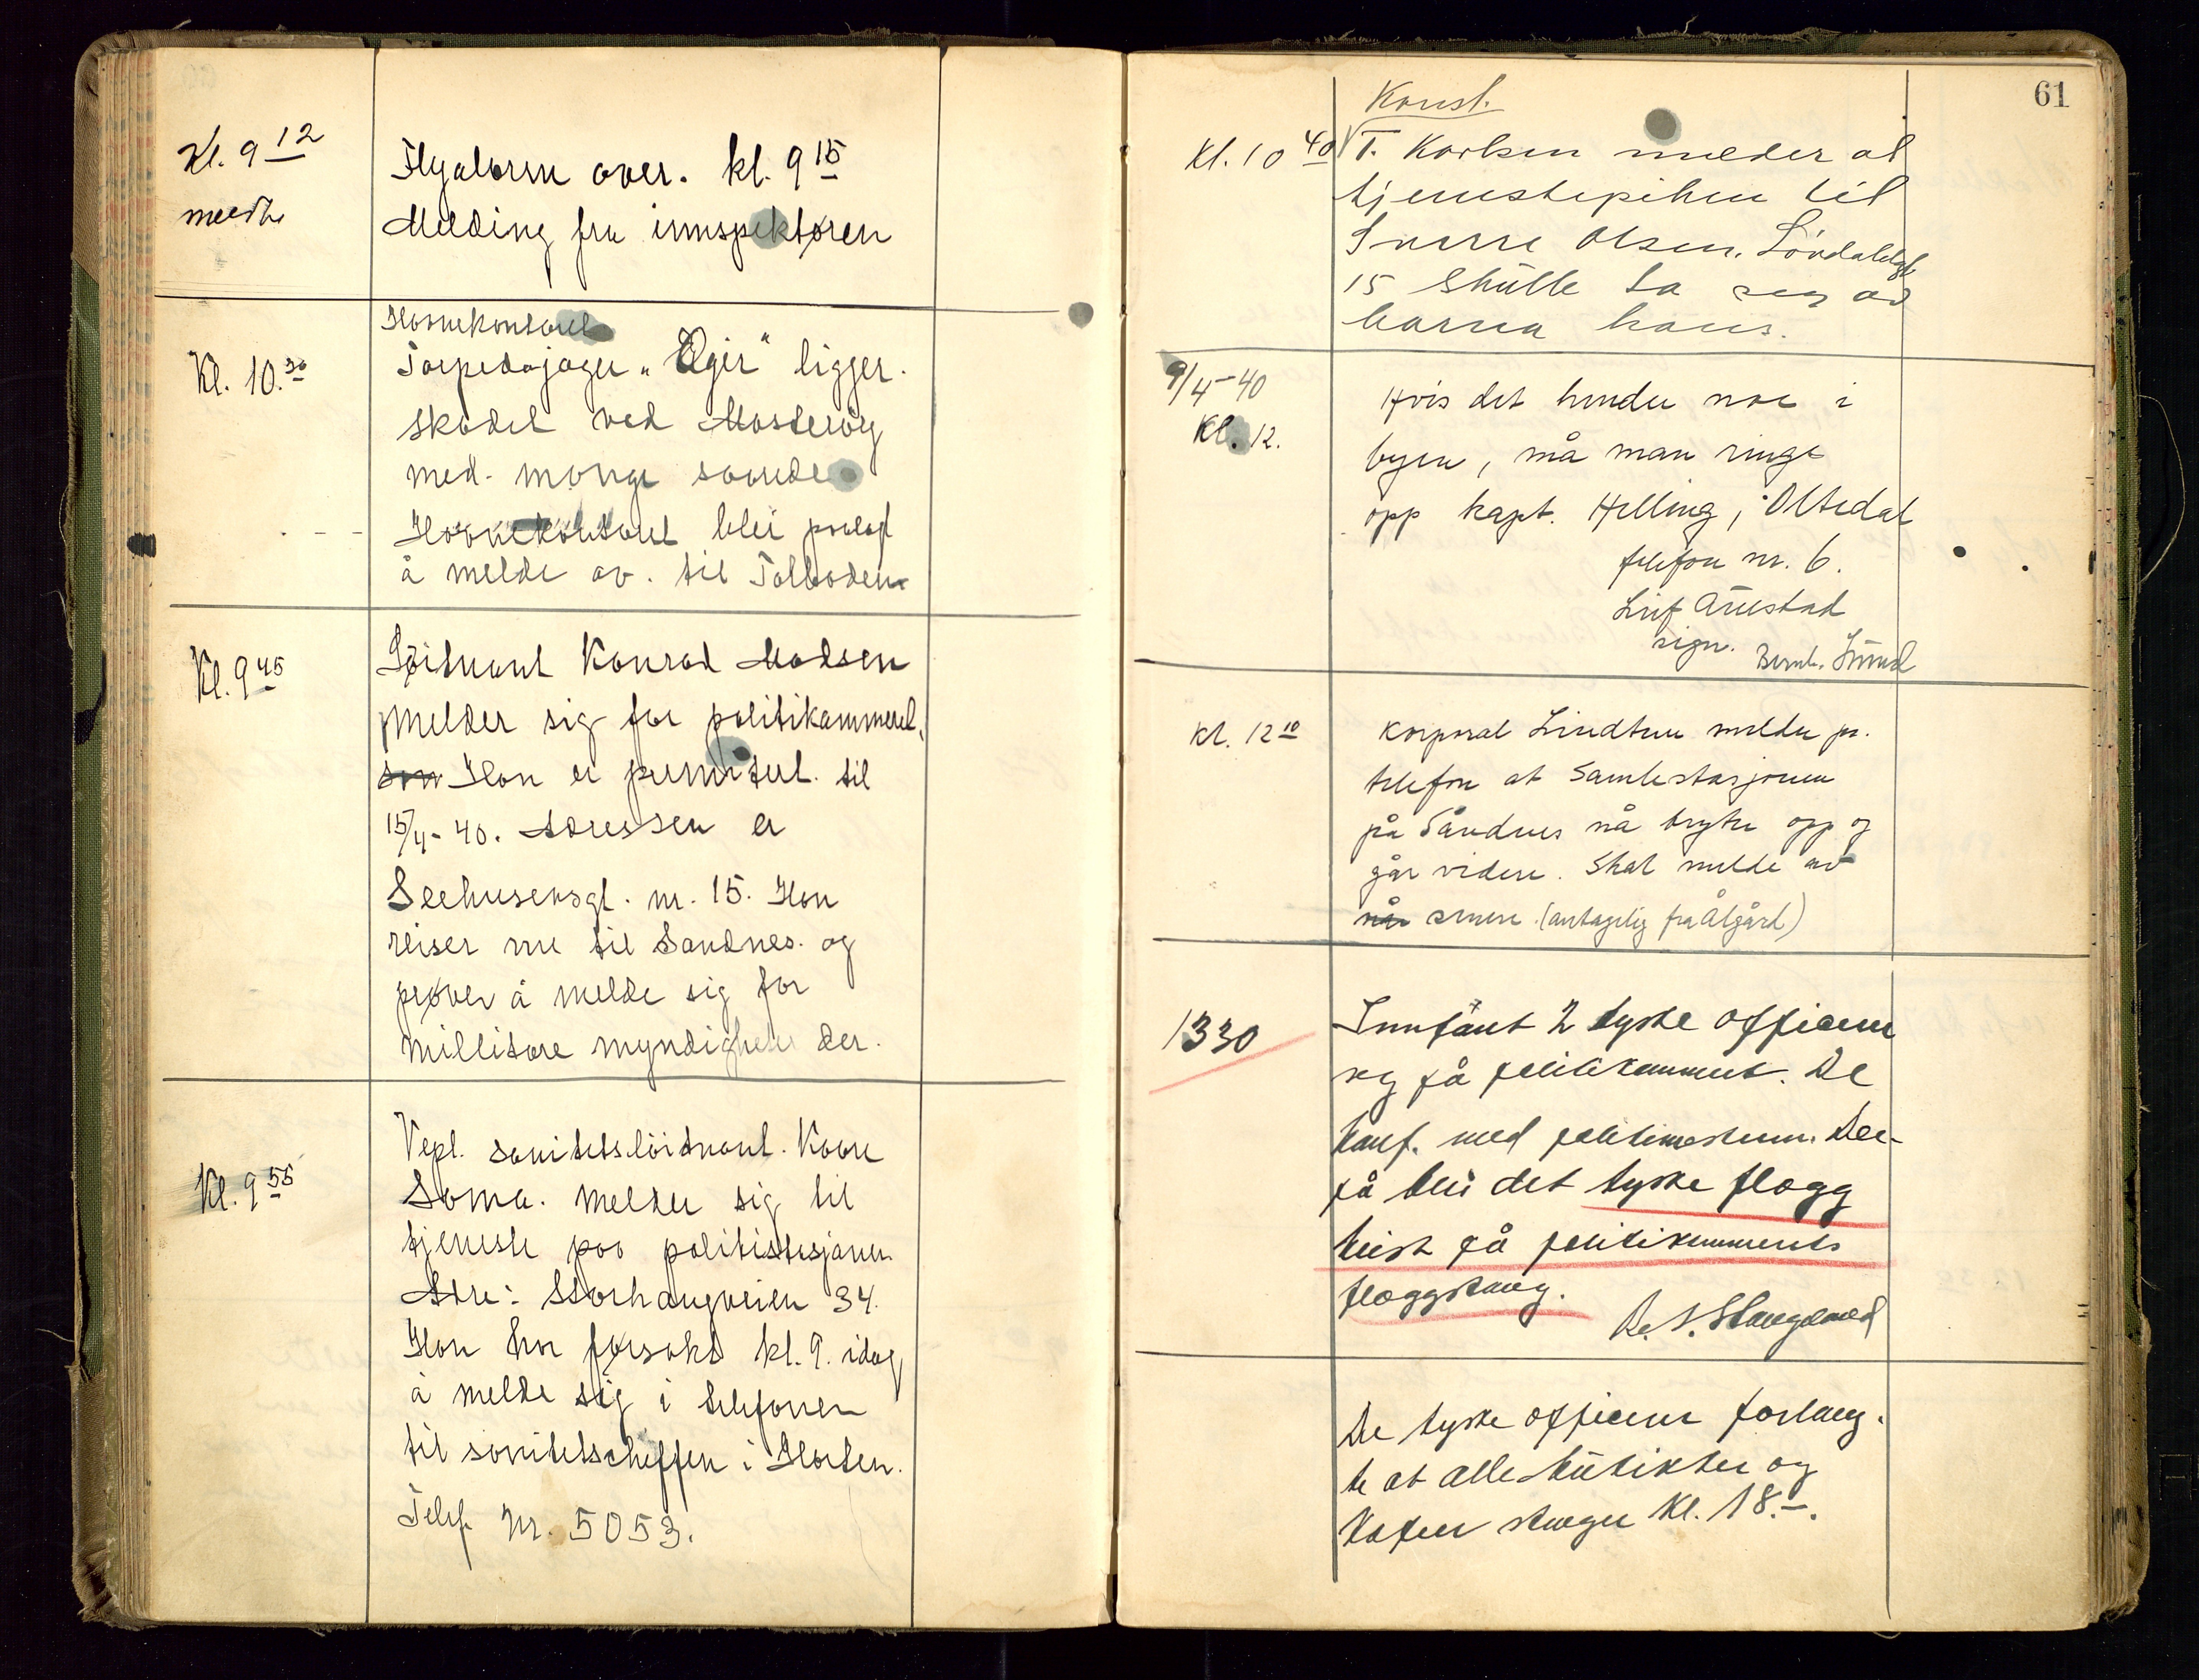 Kl. 9 12
meldte
Flyalarm over. kl. 9 15
Melding fra innspektøren
Havnekontoret
Kl. 10.30
Torpedojager "Ægir" ligger.
skadet ved Mosterøy
med mange saarede
Havnekontoret blei paalagt
å melde av. til Tolboden
Kl. 9 45
Løitnant Konrad Madsen
melder sig for politikammeret,
som Han er permitert. til
15/4-40. Adressen er
Seehusensgt. nr. 15. Han
reiser nu til Sandnes. og
prøver å melde sig for
millitære myndigheter der.
Kl. 9 55
Vepl. sanitetsløitnant. Kaare
Soma. melder sig til
tjeneste paa politistasjonen.
Adre: Storhaugveien 34.
Han har forsøkt kl. 9. idag
å melde sig i telefonen
til sanitetscheffen i Horten.
Telf. Nr. 5053.
61
Konst.
Kl. 10 40
T. Karlsen melder at
tjenestepiken til
Snorre Olsen, Lövdalsgt
15 skulle ta seg av
barna hans.
9/4-40
Kl. 12.
Hvis det hender noe i
byen, må man ringe
opp kapt. Helling, Oltedal
telefon nr. 6.
Leif Aurstad
sign. Bernh. Lund
Kl. 12 10
Korporal Lindtun melder pr.
telefon at Samlestasjonen
på Sandnes nå bryter opp og
går videre. Skal melde av
når senere. (antagelig fra Ålgård)
1330
Innfant 2 tyske officerer
seg på politikammeret. De
konf. med politimesteren. Der-
på blei det tyske flagg
heist på politikammerets
flaggstang.
De tyske officerer forlang-
te at alle butikker og
kafeer stenger Kl. 18.-.